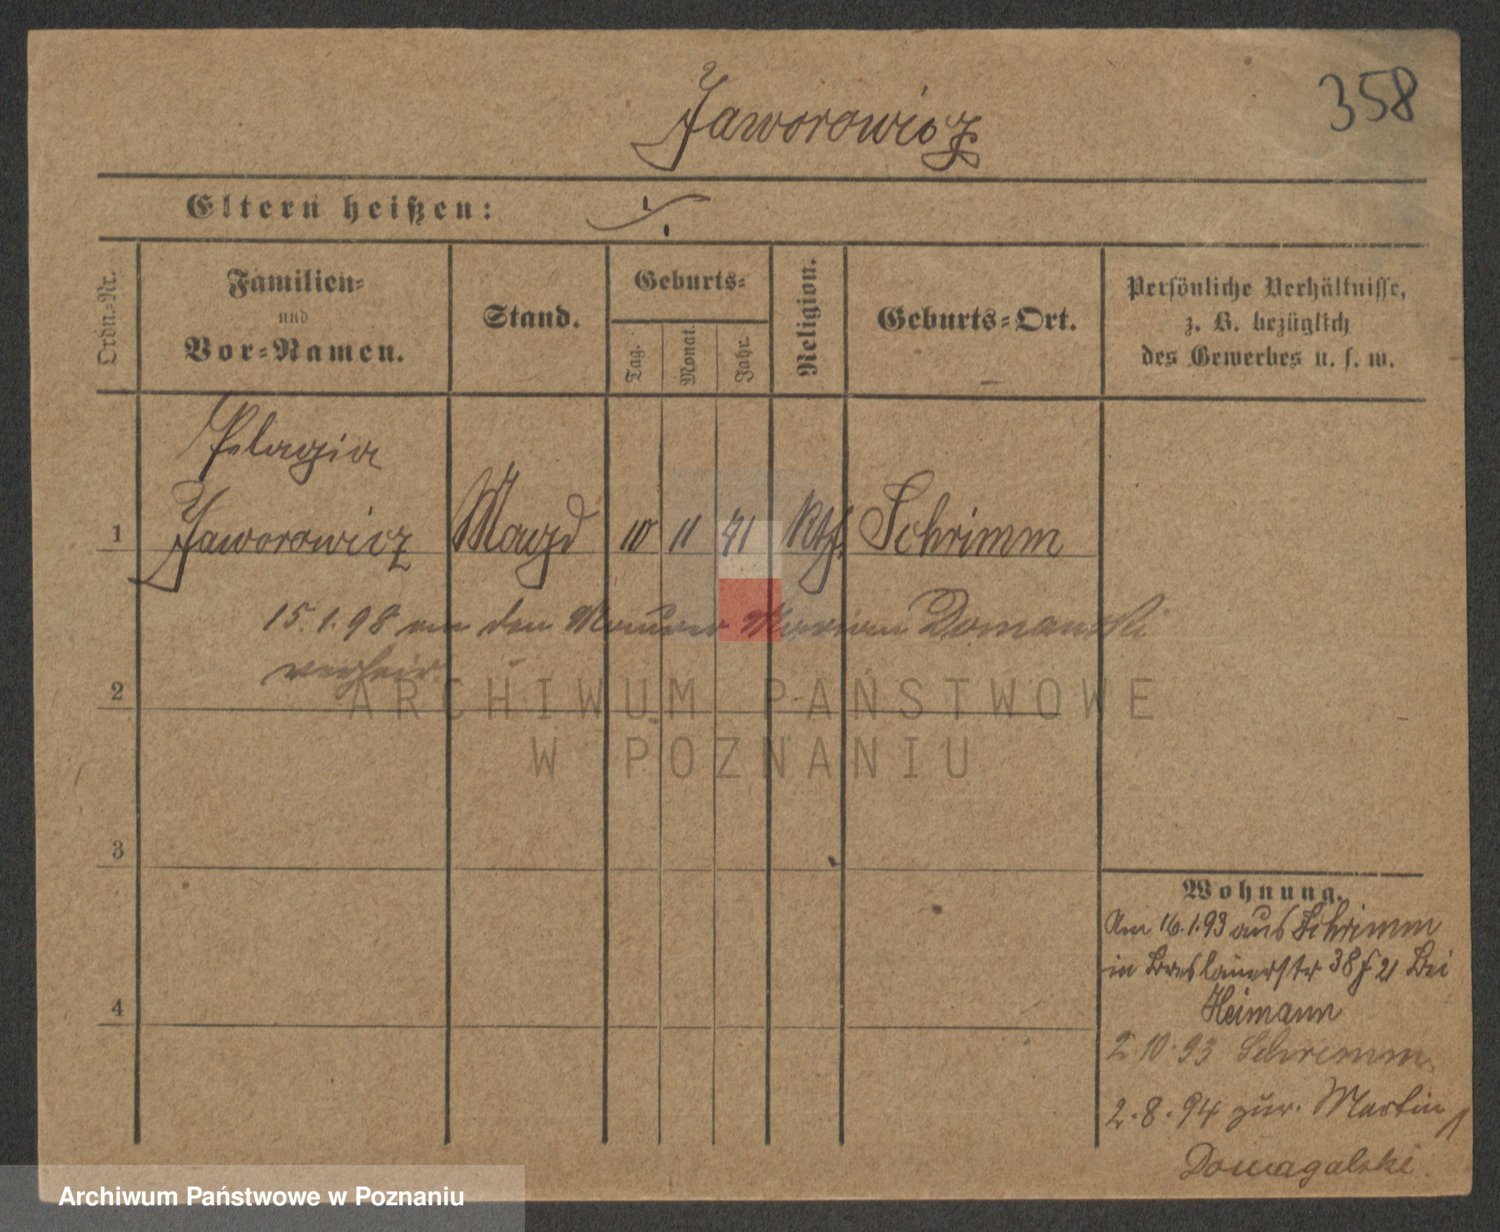 358
Jaworowicz
Eltern heißen: ·/.
Ordn.-Nr.
Familien-
und
Vor-Namen.
Stand.
Geburts-
Tag.
Monat.
Jahr.
Religion.
Geburts-Ort.
Persönliche Verhältnisse,
z. B. bezüglich
des Gewerbes u. s. w.
Pelagia
1 Jaworowicz Magd 10 11 71 Kth. Schrimm
15.1.98 an den Maurer Marian Domanski
verheir.
2
3
4
Wohnung.
Am 16.1.93 aus Schrimm
in Breslauerstr 38 21 bei
Heimann
2.10.93 Schrimm
2.8.94 zur. Martin
Domagalski.
ARCHIWUM PAŃSTWOWE
W POZNANIU
Archiwum Państwowe w Poznaniu